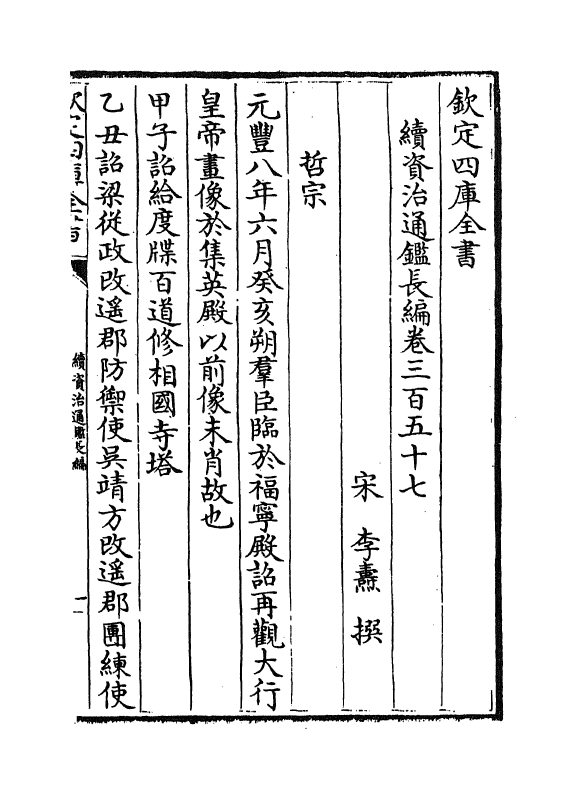 欽定四庫全書
續資治通鑑長編卷三百五十七
宋 李燾 撰
哲宗
元豐八年六月癸亥朔羣臣臨於福寧殿詔再觀大行
皇帝畫像於集英殿以前像未肖故也
甲子詔給度牒百道修相國寺塔
乙丑詔梁從政改遥郡防禦使吳靖方改遥郡團練使
欽定四庫全書
續資治通鑑長編
一